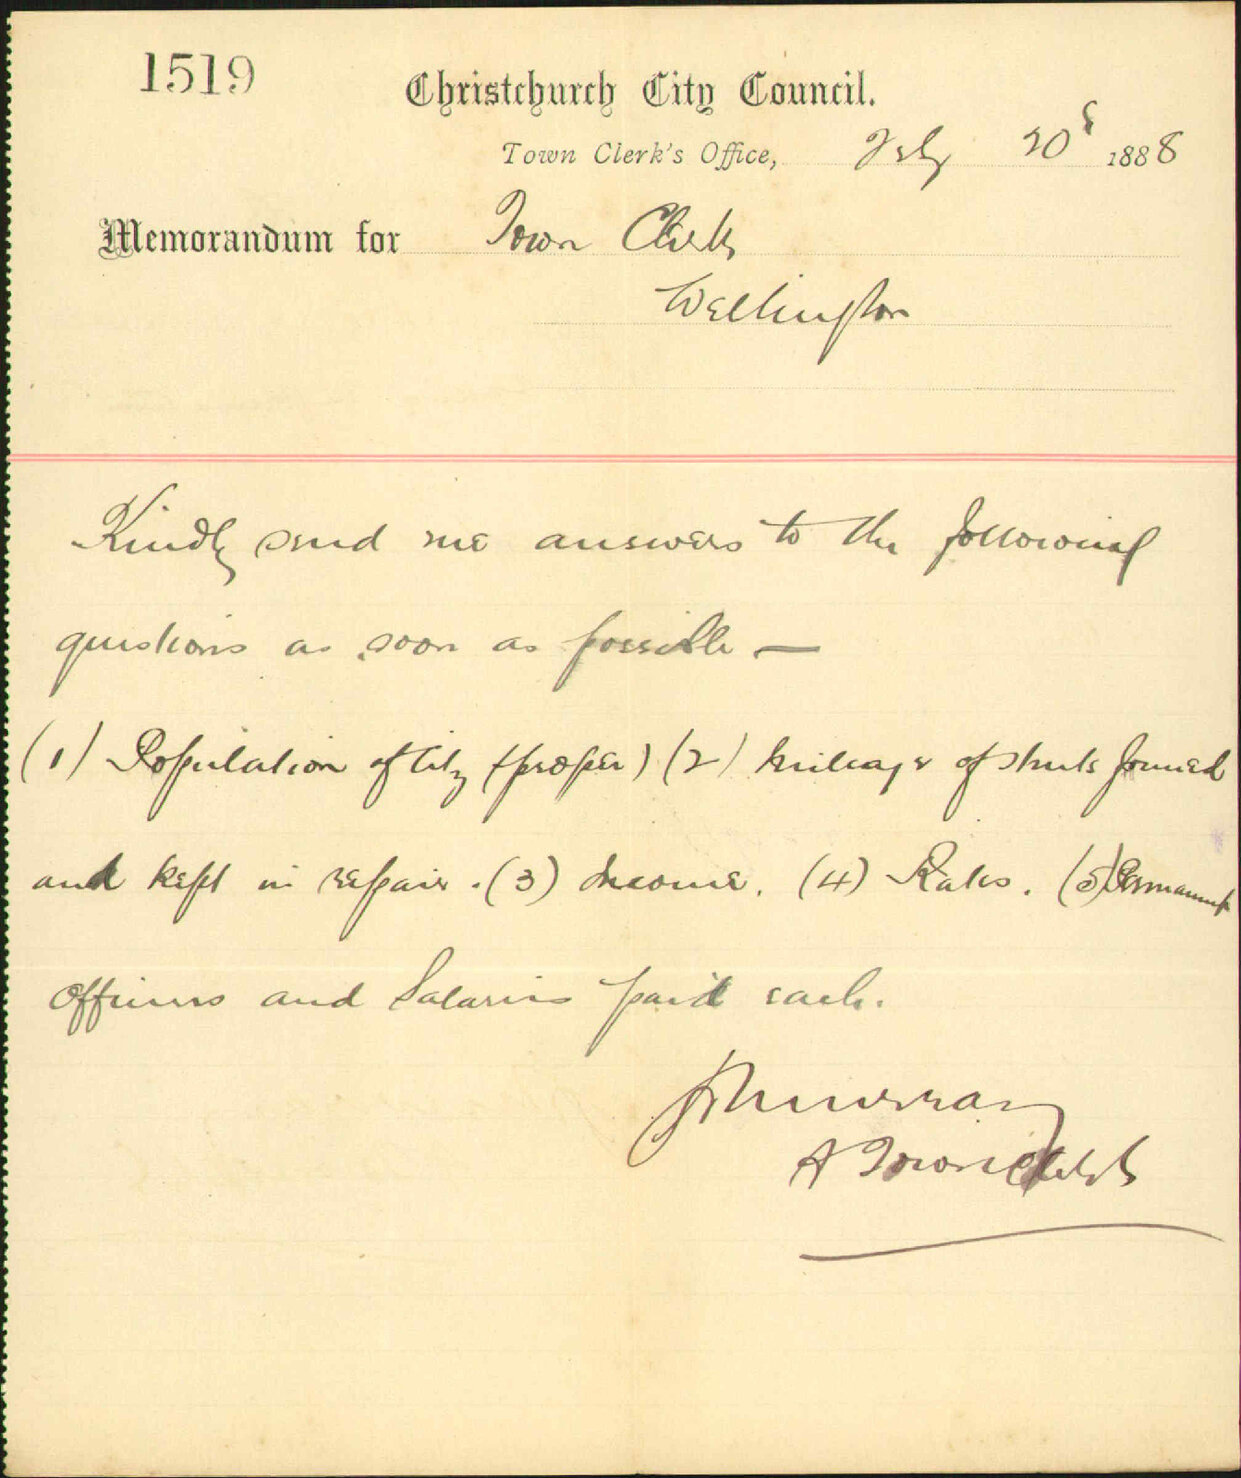 1519
Christchurch City Council.
Town Clerk's Office, July 20 1888
Memorandum for Town Clerk
Wellington
Kindly send me answers to the following
questions as soon as possible —
(1) Population of City (proper) (2) Mileage of streets formed
and kept in repair. (3) Income. (4) Rates. (5) Permanent
Officers and Salaries paid each.
Murray
A Town Clerk